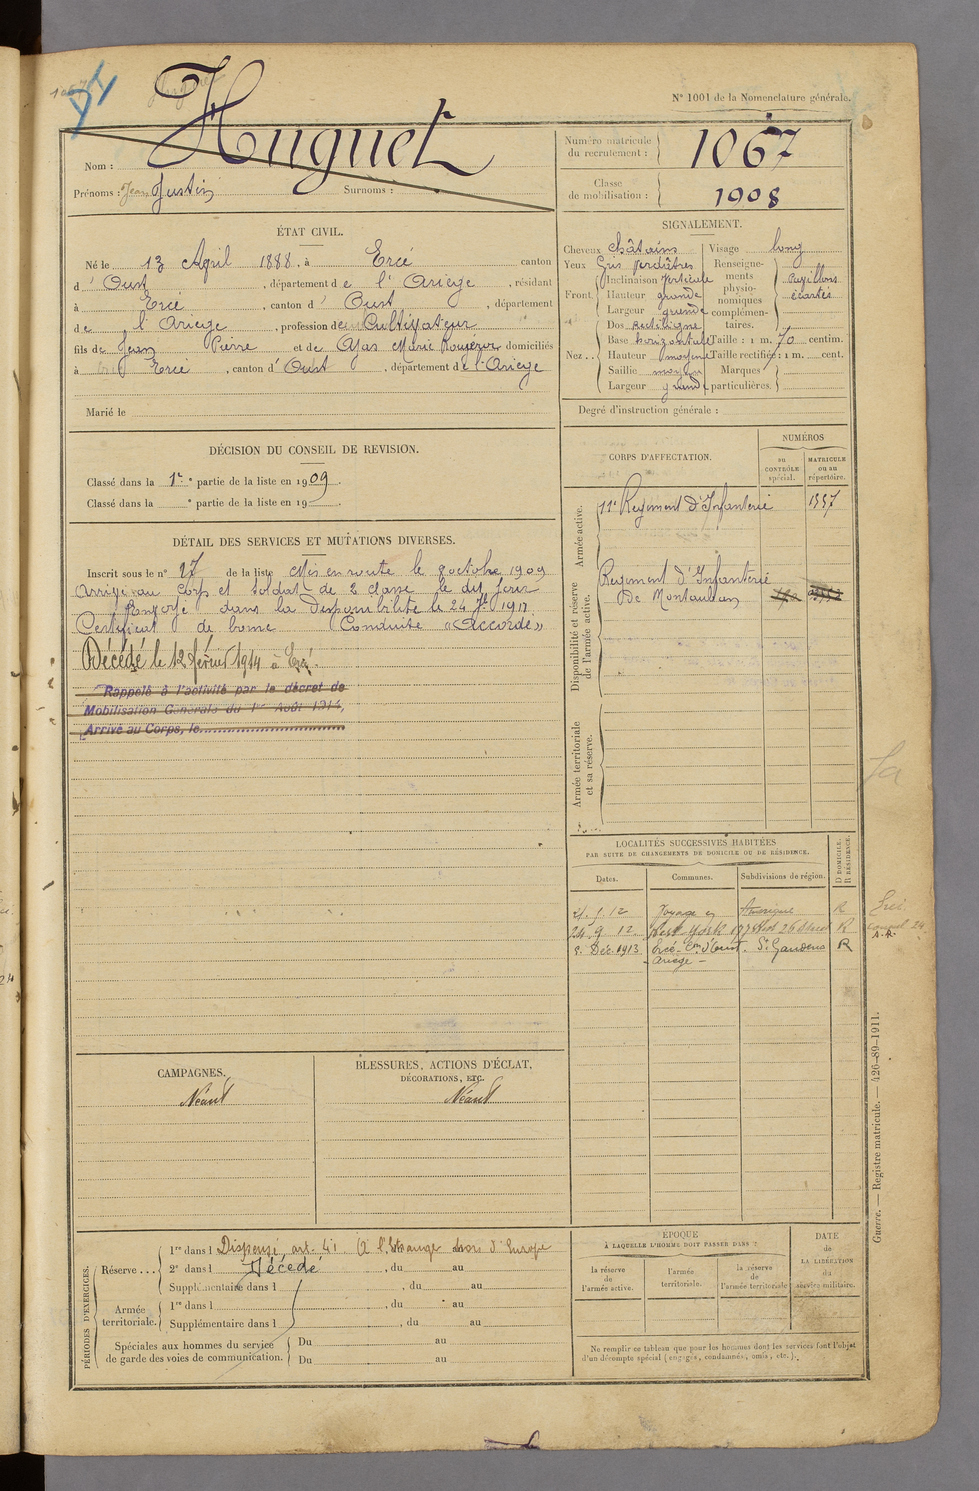 74
N° 1001 de la Nomenclature générale.
Huguet
Nom :
Prénoms : Jean Justin Surnoms :
Numéro matricule du recrutement : 1067
Classe de mobilisation : 1908
ÉTAT CIVIL.
Né le 13 April 1888, à Ercé canton
d'Oust, département de l'Ariège, résidant
à Ercé, canton d'Oust, département
de l'Ariège, profession de Cultivateur
fils de Jean Pierre et de Ajas Marie Rougézor domiciliés
à Ercé, canton d'Oust, département de l'Ariège
Marié le
SIGNALEMENT.
Cheveux châtains
Yeux Gris verdâtres
Front. Inclinaison Verticale
Hauteur grande
Largeur grande
Nez . . Dos Rectiligne
Base horizontale
Hauteur moyenne
Saillie moyen
Largeur grande
Visage long
Renseignements physionomiques complémentaires. papillons écartés
Taille : 1 m. 70 centim.
Taille rectifiée : 1 m. cent.
Marques particulières.
Degré d'instruction générale :
DÉCISION DU CONSEIL DE REVISION.
Classé dans la 1re partie de la liste en 1909.
Classé dans la e partie de la liste en 19 .
CORPS D'AFFECTATION.
NUMÉROS
au CONTRÔLE spécial.
MATRICULE ou au répertoire.
Armée active.
11e Regiment d'Infanterie 1557
Disponibilité et réserve de l'armée active.
Regiment d'Infanterie
De Montauban
Armée territoriale et sa réserve.
DÉTAIL DES SERVICES ET MUTATIONS DIVERSES.
Inscrit sous le n° 27 de la liste Mis en route le 8 octobre 1909
Arrivé au Corps et Soldat de 2 classe le dit jour
Envoyé dans la Disponibilité le 24 7bre 1911
Certificat de bonne Conduite «Accordé»
Décédé le 12 février 1914 à Ercé.
Rappelé à l'activité par le décret de
Mobilisation Générale du 1er Août 1914,
Arrivé au Corps, le
LOCALITÉS SUCCESSIVES HABITÉES
PAR SUITE DE CHANGEMENTS DE DOMICILE OU DE RÉSIDENCE.
Dates.
Communes.
Subdivisions de région.
D DOMICILE. R RÉSIDENCE.
21. 5. 12 Voyage en Amérique R
24 9 12 New-York 197 West 26 Street R
8. Déc. 1913 Ercé - Con d'Oust. St Gaudens R
- Ariège -
CAMPAGNES.
Néant
BLESSURES, ACTIONS D'ÉCLAT,
DÉCORATIONS, ETC.
Néant
PÉRIODES D'EXERCICES.
Réserve . . . 1re dans l Dispensé, art. 41. (à l'Étranger hors d'Europe
2e dans l Décédé, du au
Supplémentaire dans l , du au
Armée territoriale. 1re dans l , du au
Supplémentaire dans l , du au
Spéciales aux hommes du service de garde des voies de communication. Du au
Du au
ÉPOQUE
À LAQUELLE L'HOMME DOIT PASSER DANS :
la réserve de l'armée active.
l'armée territoriale.
la réserve de l'armée territoriale
DATE de LA LIBÉRATION du service militaire.
Ne remplir ce tableau que pour les hommes dont les services font l'objet
d'un décompte spécial (engagés, condamnés, omis, etc.).
Guerre. — Registre matricule. — 426-89-1911.